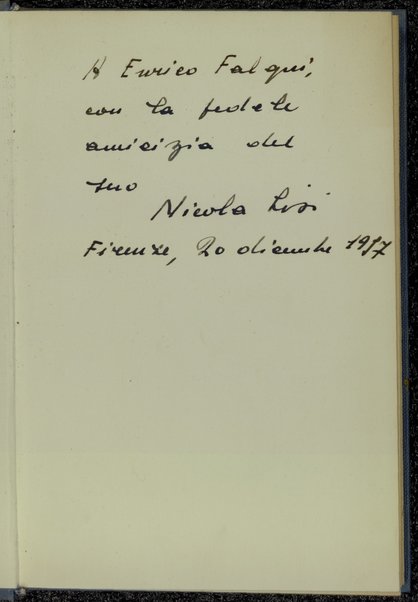 A Enrico Falqui,
con la fedele
amicizia del
suo
Nicola Lisi
Firenze, 20 dicembre 1957